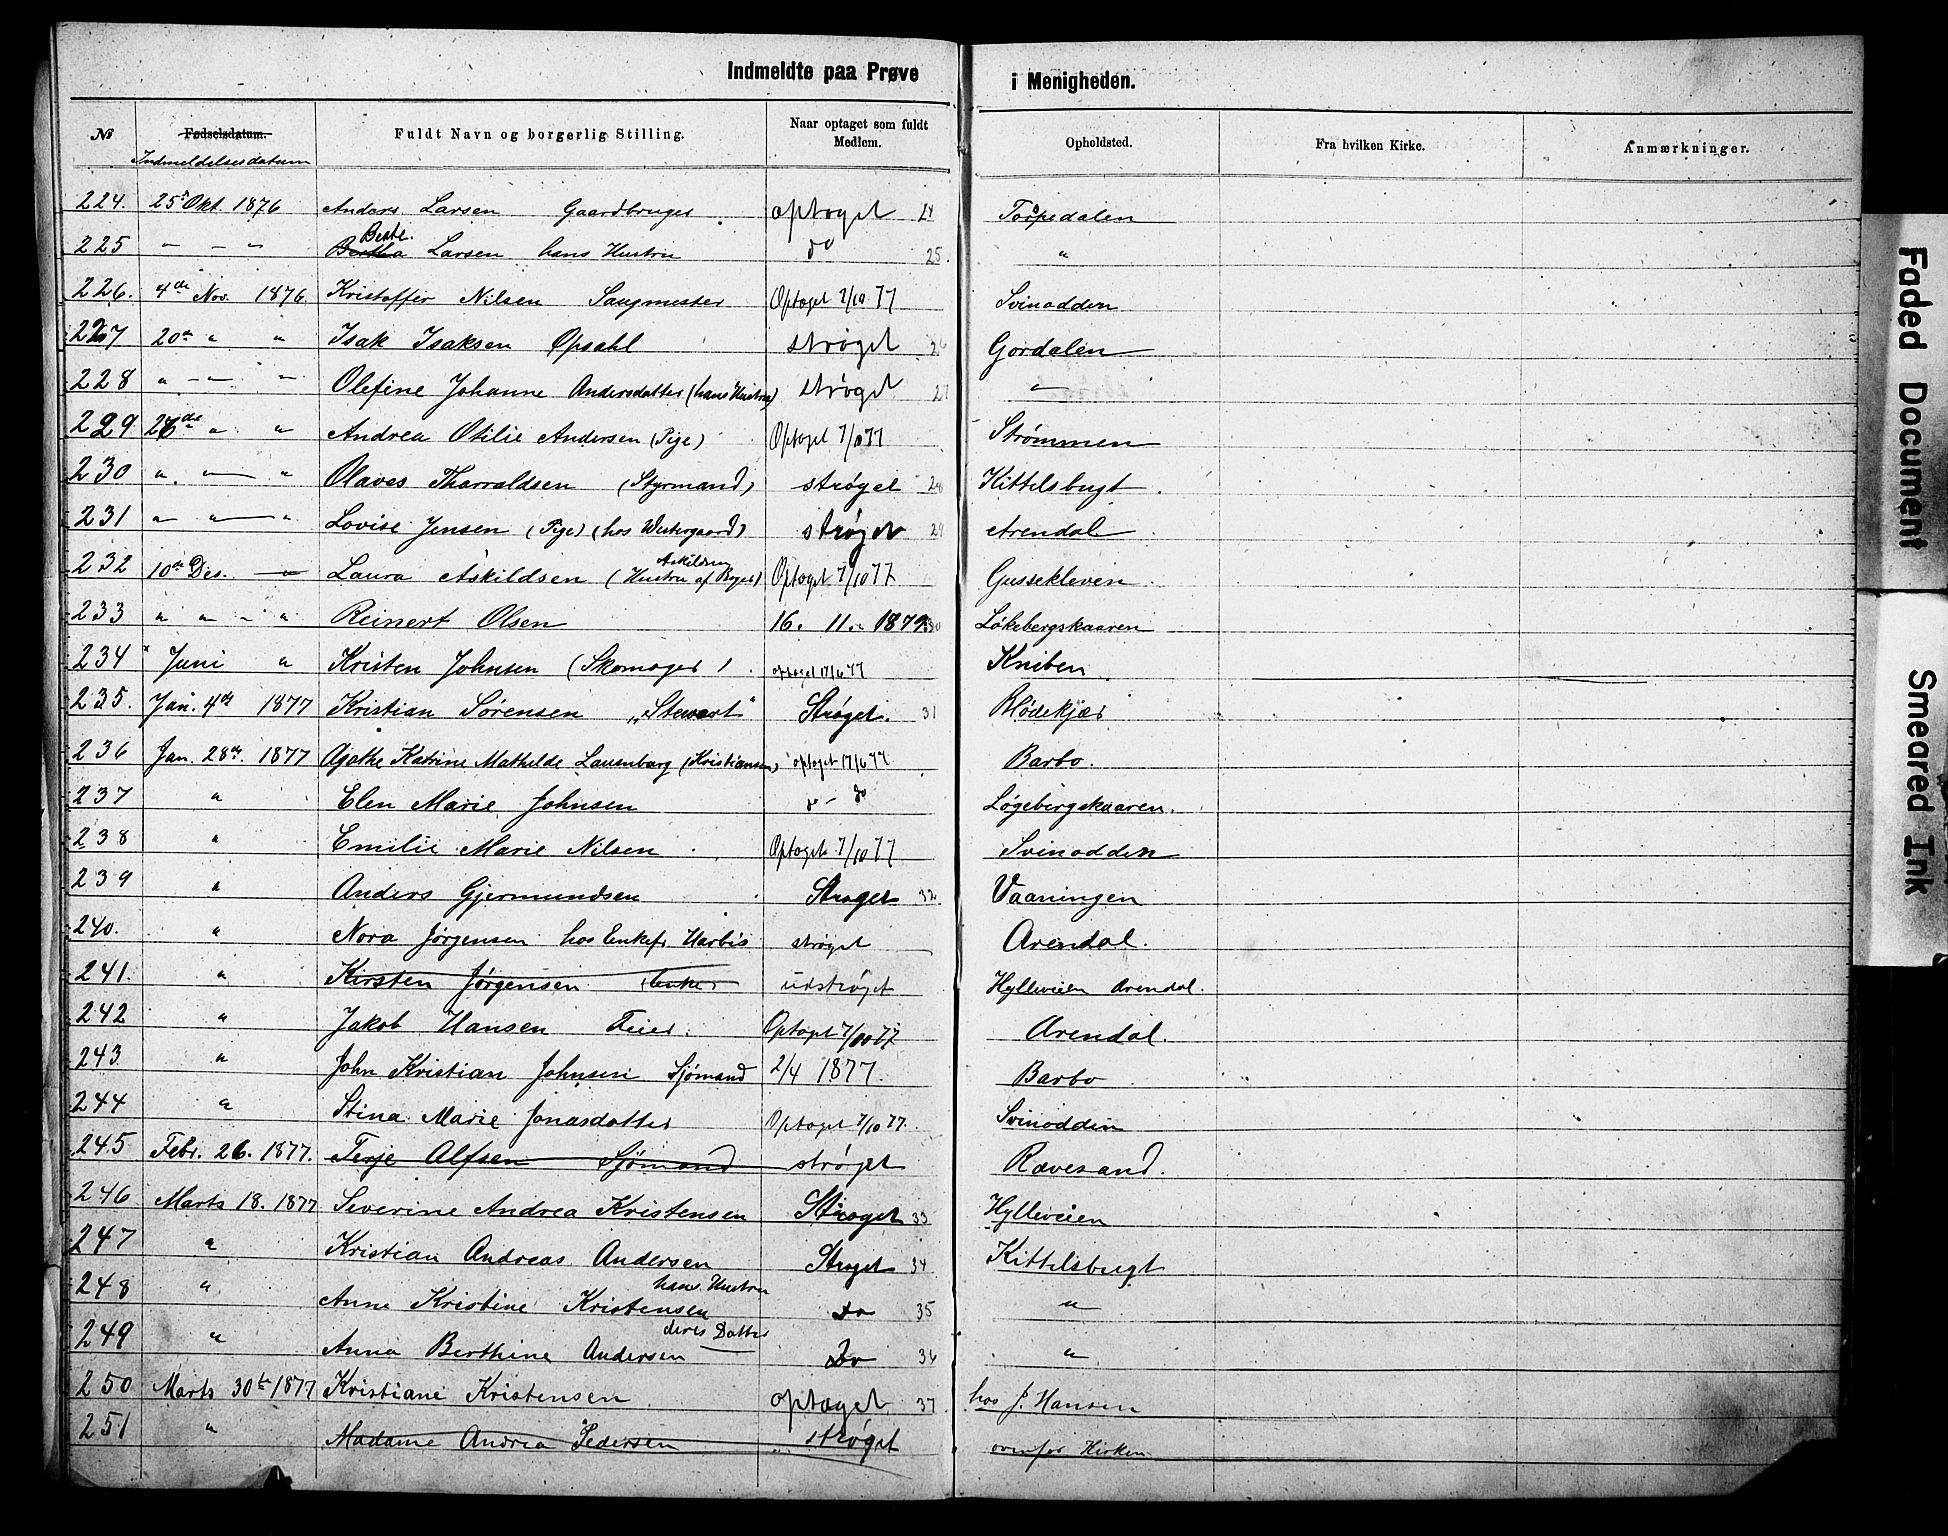 Indmeldte paa Prøve i Menigheden.
№ Fødselsdatum. Indmeldelsesdatum Fuldt Navn og borgerlig Stilling. Naar optaget som fuldt Medlem. Opholdsted. Fra hvilken Kirke. Anmærkninger.
224. 25 Okt. 1876 Anders Larsen Gaardbruger optaget 24 Torpedalen
225 " - " Berte Larsen hans Hustru do 25. "
226. 4de Nov. 1876. Kristoffer Nilsen Saugmester Optaget 7/10 77 Svinodden
227 20de " " Isak Isaksen Opsahl strøget 26 Gordalen
228 " - " Olefine Johanne Andersdatter (hans Hustru) strøget 27 "
229. 26de " " Andrea Otilie Andersen (Pige) Optaget 7/10 77 Strømmen
230 " - " Olaves Tharraldsen (Styrmand) strøget 28 Kittelsbugt
231 " " - " Lovise Jensen (Pige) (hos Westergaard) strøget 29 Arendal
232 10de Des. - " Laura Askildsen (Hustru af Askildsen) Optaget 7/10 77 Gussekleven
233 " " - " Reinert Olsen 16. 11. 1879 30 Løkebergskaaren
234 Juni " Kristen Johnsen (Skomager) optaget 17/6 77 Kniben
235. Jan. 4de 1877 Kristian Sørensen „Stewart" Strøget. 31 Blødekjær
236 Jan. 28de 1877 Agathe Katrine Mathilde Lauenborg (Kristiansen) optaget 17/6 77 Barbo.
237 " Elen Marie Johnsen do - do Løgebergskaaren.
238 " Emilie Marie Nilsen Optaget 7/10 77 Svinodden
239 " Anders Gjermundsen Strøget 32 Vaaningen
240. " Nora Jørgensen hos Enkefr. strøget Arendal.
241. " Kirsten Jørgensen (Enke) udstrøget Hylleveien Arendal.
242 " Jakob Hansen Feier. Optaget 7/10 77 Arendal.
243. " John Kristian Johnsen Sjømand 2/4 1877. Barbo
244 " Stina Marie Jonasdatter Optaget 7/10 77. Svinodden
245 Febr. 26. 1877. Terje Alfsen Sjømand strøget Rævesand.
246 Marts 18. 1877 Severine Andrea Kristensen Strøget 33 Hylleveien
247 " Kristian Andreas Andersen Strøget 34 Kittelsbugt
248 " Anne Kristine Kristensen hans Hustru do 35 "
249 " Anna Berthine Andersen deres Datter Do 36 "
250 Marts 30te 1877 Kristiane Kristensen optaget 37 hos J. Hansen
251 " Madame Andrea Pedersen strøget ovenfor Kirken
Faded Document
Smeared Ink